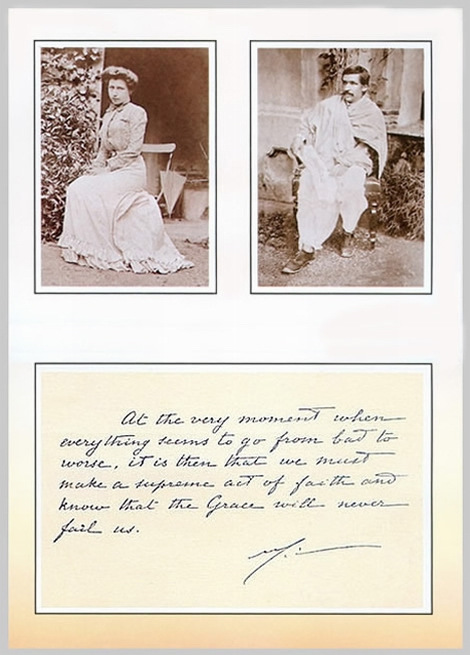 At the very moment when
everything seems to go from bad to
worse, it is then that we must
make a supreme act of faith and
know that the Grace will never
fail us.